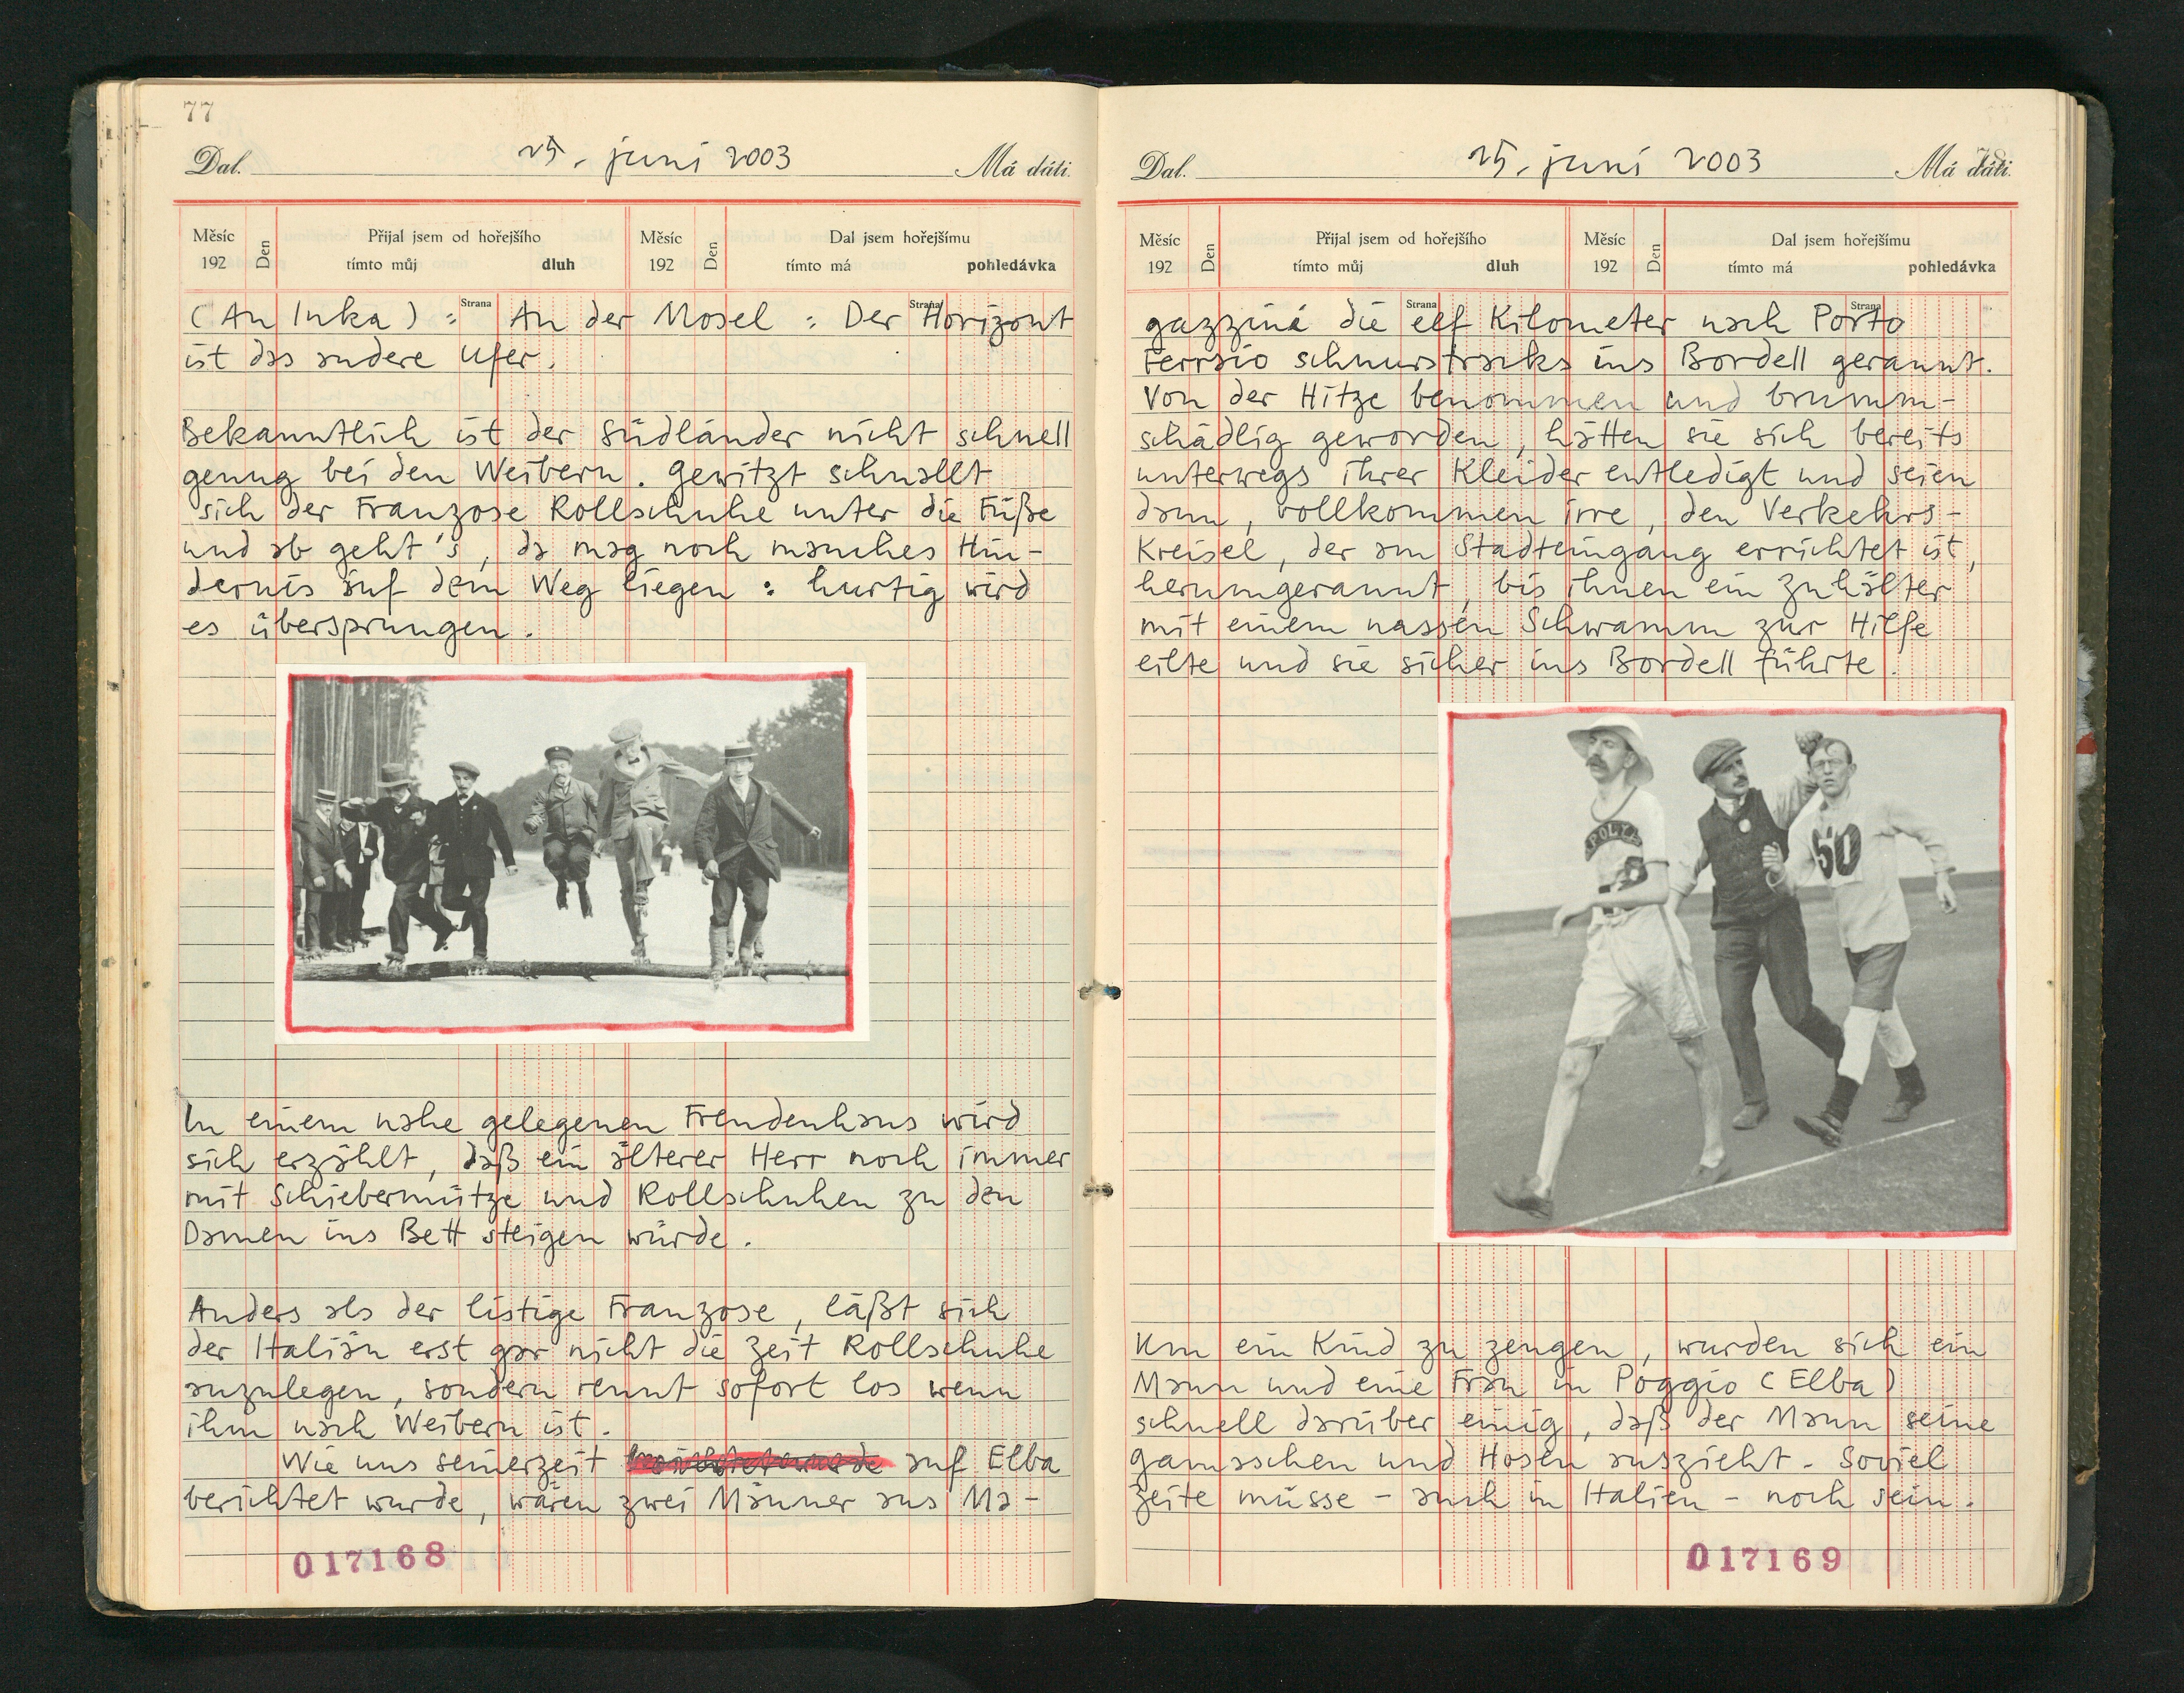 77
Dal. 25. juni 2003 Má dáti.
Měsíc 192 Den Přijal jsem od hořejšího tímto můj dluh Měsíc 192 Den Dal jsem hořejšímu tímto má pohledávka
Strana Strana
(An Inka) : An der Mosel : Der Horizont
ist das andere Ufer.
Bekanntlich ist der Südländer nicht schnell
genug bei den Weibern. Gewitzt schnallt
sich der Franzose Rollschuhe unter die Füße
und ab geht's, da mag noch manches Hin-
dernis auf dem Weg liegen : hurtig wird
es übersprungen.
In einem nahe gelegenen Freudenhaus wird
sich erzählt, daß ein älterer Herr noch immer
mit Schiebermütze und Rollschuhen zu den
Damen ins Bett steigen würde.
Anders als der listige Franzose, läßt sich
der Italiän erst gar nicht die Zeit Rollschuhe
anzulegen, sondern rennt sofort los wenn
ihm nach Weibern ist.
Wie uns seinerzeit auf Elba
berichtet wurde, wären zwei Männer aus Ma-
017168
Dal. 25. juni 2003 Má dáti.
78
Měsíc 192 Den Přijal jsem od hořejšího tímto můj dluh Měsíc 192 Den Dal jsem hořejšímu tímto má pohledávka
Strana Strana
gazziné die elf Kilometer nach Porto
Ferraio schnurstraks ins Bordell gerannt.
Von der Hitze benommen und brumm-
schädlig geworden, hätten sie sich bereits
unterwegs ihrer Kleider entledigt und seien
dann, vollkommen irre, den Verkehrs-
Kreisel, der am Stadteingang errichtet ist,
herumgerannt, bis ihnen ein Zuhälter
mit einem nassen Schwamm zur Hilfe
eilte und sie sicher ins Bordell führte.
POLY
50
Um ein Kind zu zeugen, wurden sich ein
Mann und eine Frau in Poggio (Elba)
schnell darüber einig, daß der Mann seine
Gamaschen und Hosen auszieht. Soviel
Zeite müsse – auch in Italien – noch sein.
017169